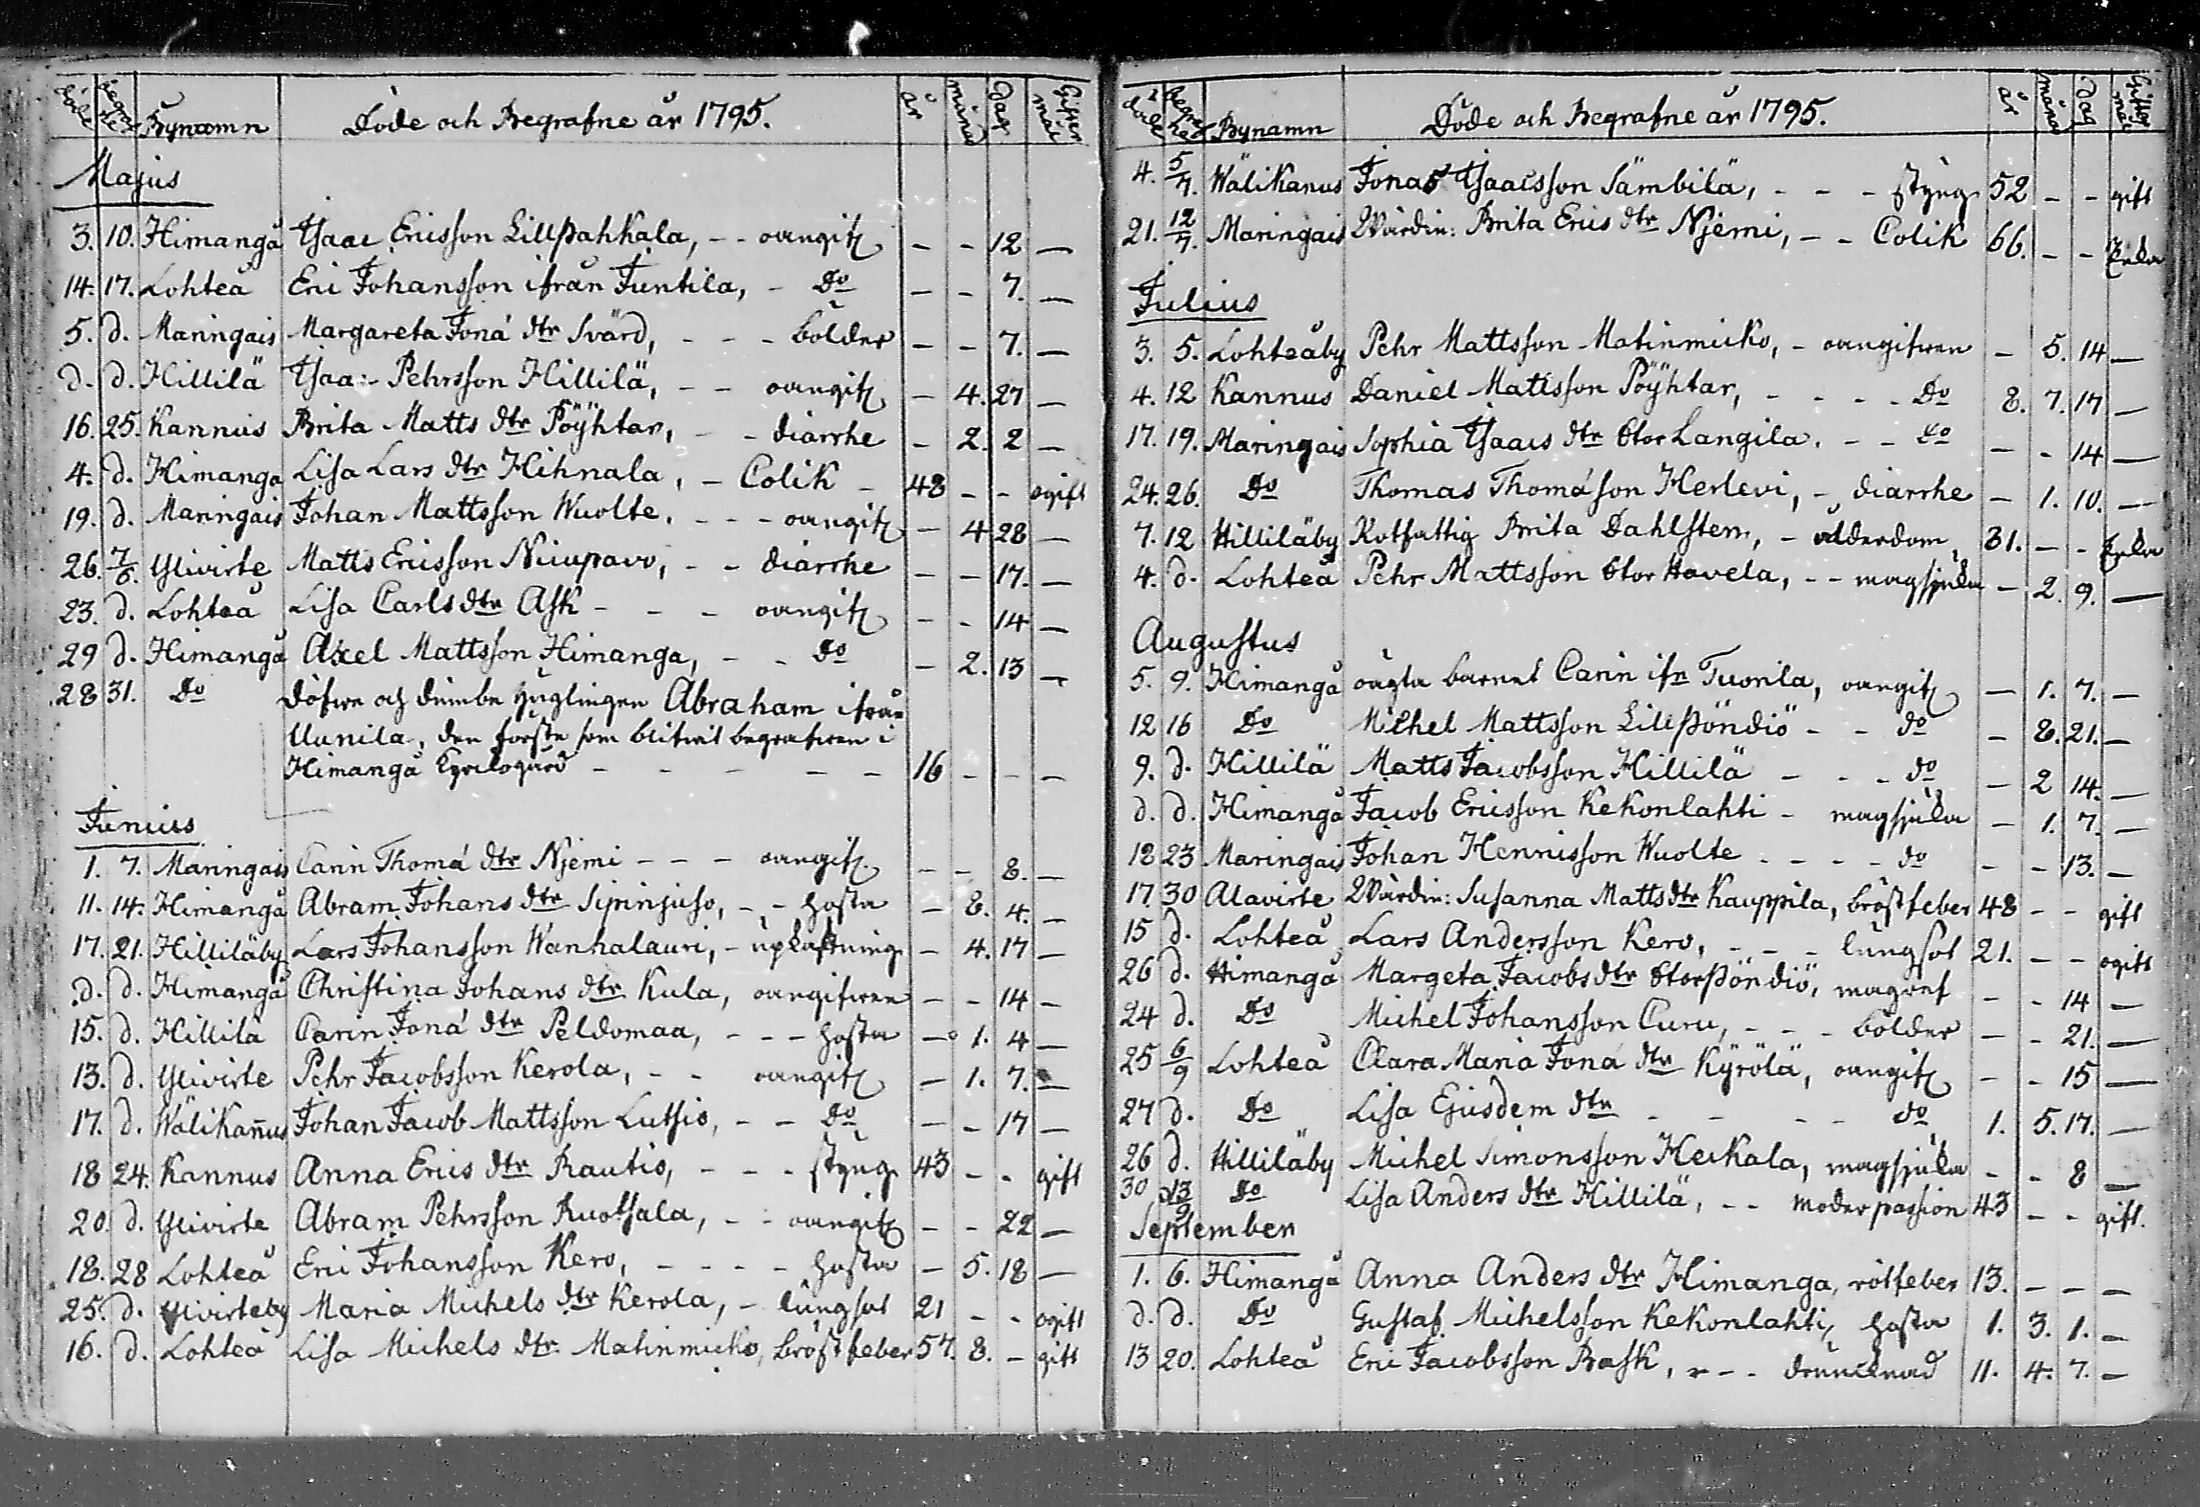 döde begrafne Bynamn Döde och Begrafne år 1795. år månd dag Gifter mål
Majus
3. 10. Himangå Isaac Ericsson Lillpahkala, - - oangif: - - 12 -
14. 17. Lohteå Eric Johansson ifrån Juntila, - Do - - 7. -
5. d. Maringais Margareta Jona dtr Svärd, - - - bölder - - 7. -
d. d. Hillilä Isaac Pehrsson Hillilä, - - oangif: - 4. 27 -
16. 25. Kannus Brita Matts dtr Pöÿhtar, - - diarrhe - 2. 2 -
4. d. Himanga Lisa Lars dtr Hihnala, - Colik - 48 - - ogift
19. d. Maringais Johan Mattsson Wuolte, - - - oangif: - 4 28 -
26. 7/6. Ylivirte Matts Ericsson Niupavo, - - diarrhe - - 17. -
23. d. Lohteå Lisa Carls dtr Ask - - - oangif: - - 14 -
29 d. Himangå Axel Mattsson Himanga, - - do - 2. 13 -
28 31. Do döfwe och dumbe ynglingen Abraham ifrån
Uunila, den förste som blifwit begrafwen i
Himangå Kyrkogård - - - - - 16 - - -
Junius
1. 7. Maringais Carin Thomá dtr Njemi - - - oangif: - - 8. -
11. 14. Himangå Abram Johans dtr Sipinjuso, - - hosta - 8. 4. -
17. 21. Hilliläby Lars Johansson Wanhalauri, - upkastning - 4. 17 -
d. d. Himangå Christina Johans dtr Kula, oangifwen - - 14 -
15. d. Hillilä Carin Joná dtr Peldomaa, - - - hosta - 1. 4 -
13. d. Ylivirte Pehr Jacobsson Kerola, - - oangif: - 1. 7. -
17. d. Wälikañus Johan Jacob Mattsson Lutsio, - - Do - - 17 -
18 24. Kannus Anna Erics dtr Rautio, - - - styng 43 - - gift
20. d. Ylivirte Abram Pehrsson Ruotsala, - - oangif: - - 22 -
18. 28 Lohteå Eric Johansson Kero, - - - - hosta - 5. 18 -
25. d. Ylivirteby Maria Michels dtr Kerola, - lungsot 21 - - ogift
16. d. Lohteå Lisa Michels dtr Matinmicko, bröstfeber 57. 8. - gift
döde begrafne Bynamn Döde och Begrafne år 1795. år månad dag Gifter mål
4. 5/7. Wälikanus Jonas Isacsson Sämbilä, - - - styng 52 - - gift
21. 12/7. Maringais Wärdin: Brita Erics dtr Njemi, - - Colik 66. - - Enka
Julius
3. 5. Lohteåby Pehr Mattsson Matinmicko, - oangifwen - 5. 14 -
4. 12 Kannus Daniel Mattsson Pöÿhtar, - - - - Do 8. 7. 17 -
17. 19. Maringais Sophia Isaacs dtr Stor Langila. - - do - - 14 -
24. 26. Do Thomas Thomáson Herlevi, - diarrhe - 1. 10. -
7. 12 Hilliläby Rotfattig Brita Dahlsten, - ålderdom 81. - - Enka
4. d. Lohteå Pehr Mattsson Stor Havela, - - magsjuka - 2. 9. -
Augustus
5. 9. Himangå oägta barnet Carin ifr Tuorila, oangif: - 1. 7. -
12 16 Do Michel Mattsson Lillpöndiö - - do - 8. 21. -
9. d. Hillilä Matts Jacobsson Hillilä - - - do - 2 14. -
d. d. Himangå Jacob Ericsson Kekonlahti - magsjuka - 1. 7. -
18 23 Maringais Johan Hennisson Wuolte - - - - do - - 13. -
17 30 Alavirte Wärdin: Susanna Matts dtr Kauppila, bröstfeber 48 - - gift
15 d. Lohteå Lars Andersson Kero, - - - lungsot 21. - - ogift
26 d. Himangå Margeta Jacobs dtr Storpöndiö, magref - - 14 -
24 d. Do Michel Johansson Curu, - - - bölder - - 21. -
25 6/9 Lohteå Clara Maria Joná dtr Kÿrölä, oangif: - - 15 -
27 d. Do Lisa Ejusdem dtr - - - - do 1. 5. 17. -
26 d. Hilliläby Michel Simonsson Heikala, magsjuka - - 8 -
30 13/9 Do Lisa Anders dtr Hillilä, - - moderpassion 43 - - gift.
September
1. 6. Himangå Anna Anders dtr Himanga, rötfeber 13. - - -
d. d. Do Gustaf Michelsson Kekonlahti, hosta 1. 3. 1. -
13 20. Lohteå Eric Jacobsson Rask, - - - drunknad 11. 4. 7. -